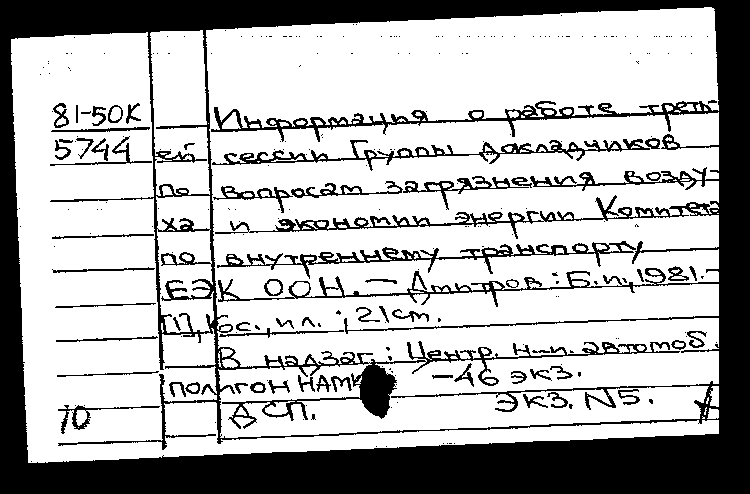 81-50К Информация о работе треть-
5744 ей сессии Группы докладчиков
по вопросам загрязнения возду-
ха и экономии энергии Комитета
по внутреннему транспорту
ЕЭК ООН. — Дмитров : Б.и., 1981. -
16с., ил. ; 21см.
В надзаг.: Центр. н.-и. автомоб.
полигон НАМИ — 46 экз.
10 ДСП. Экз. N5.